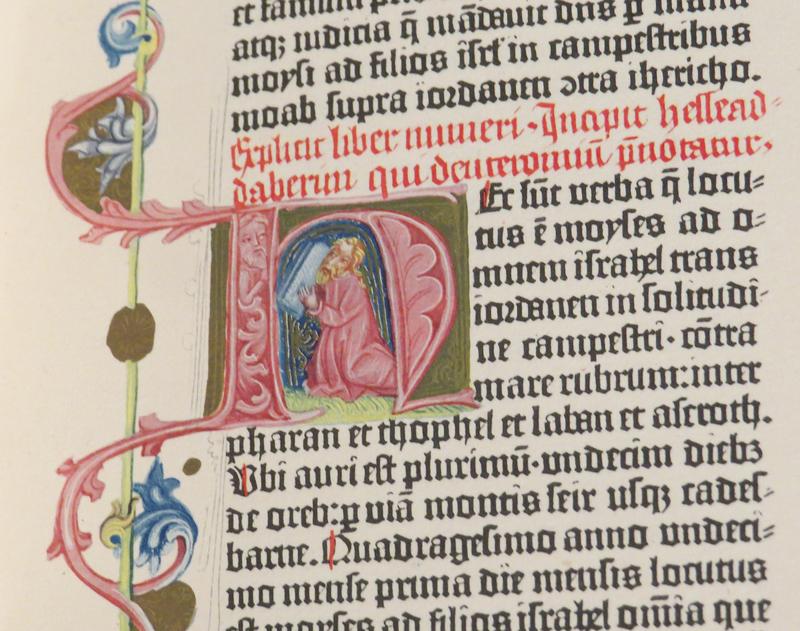 atq; iudicia q̄ mādauit dn̄s ꝑ manū
moysi ad filios iſrl' in campeſtribus
moab ſupra iordanen ↄtra ihericho.
Explicit liber numeri · Incipit helleaddaberim
qui deuteronomiū p̄notatur.
Ec ſūt verba q̄ locu⸗
tus ē moyſes ad o⸗
mnem iſrahel trans
iordanen in ſolitudi⸗
ne campeſtri · cōtra
mare rubrum: inter
pharan et thophel et laban et aſeroth.
Vbi auri eſt plurimū · undecim diebꝫ
de oreb: ꝑ viā montis ſeir uſqꝫ cadeſ⸗
barne. Quadrageſimo anno undeci⸗
mo menſe prima die menſis locutus
eſt moyſes ad filios iſrahel om̄ia que